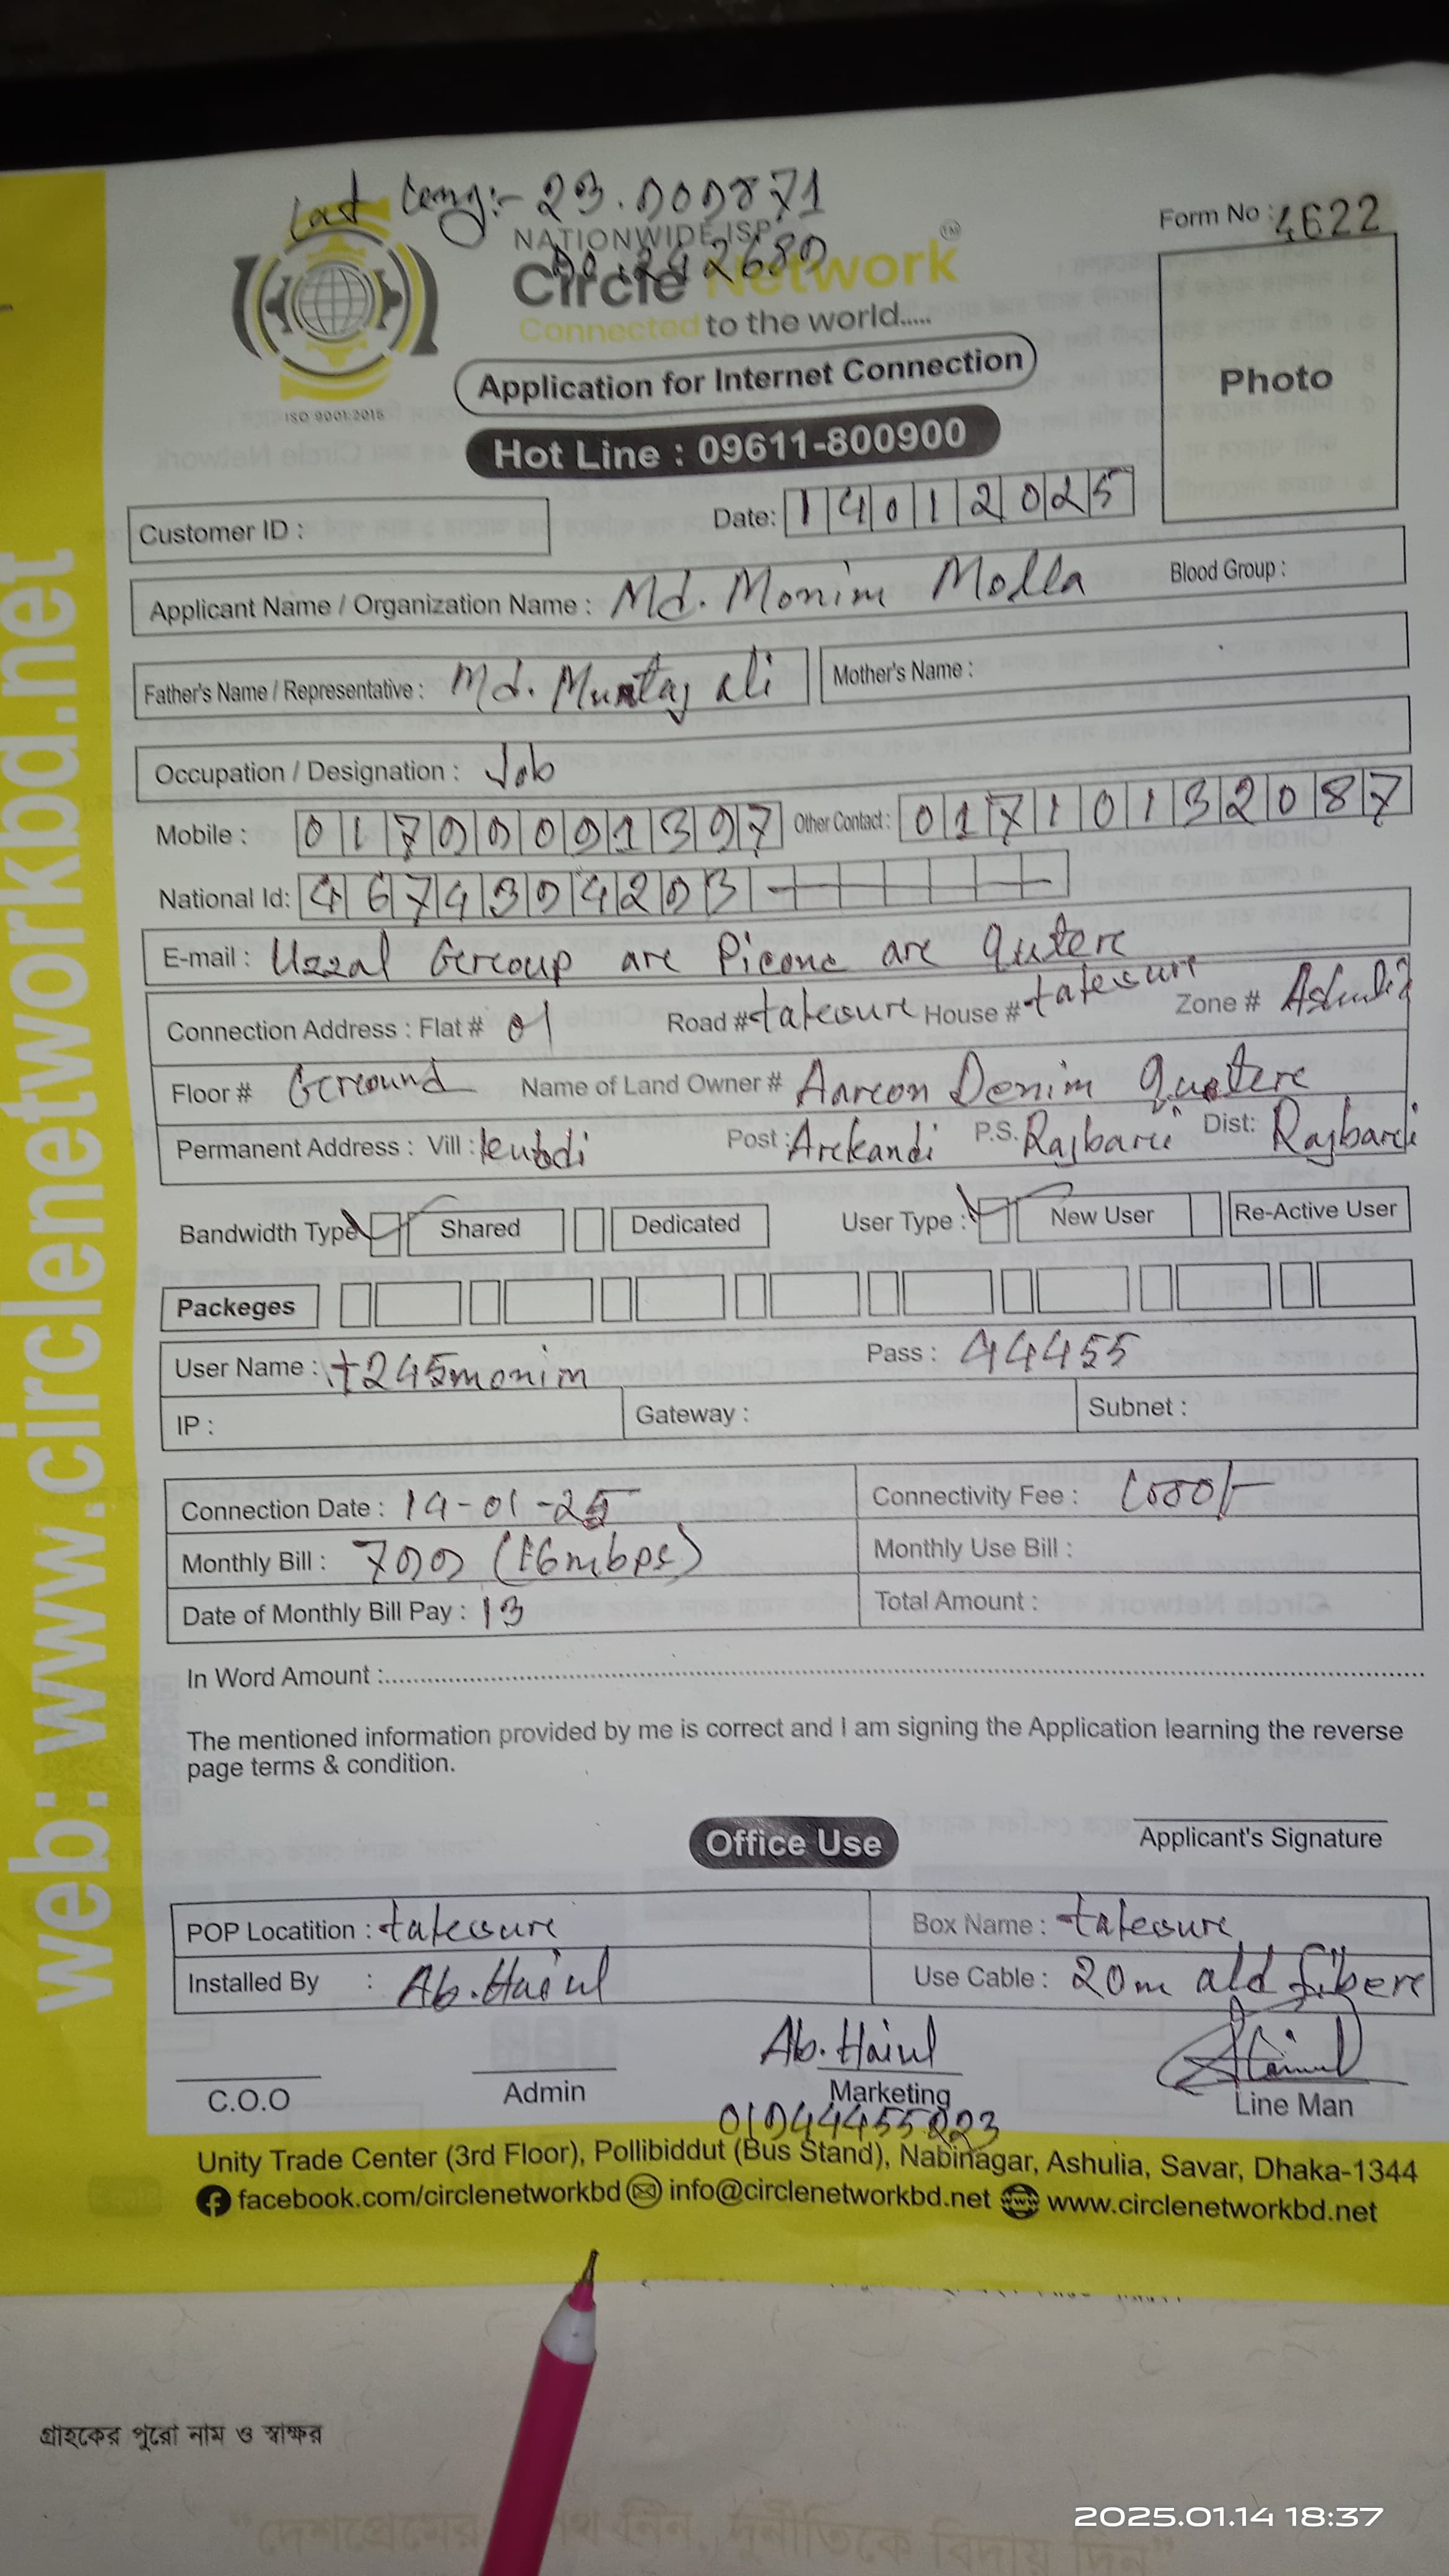 Lat Long:- 23.000871
00.242680
NATIONWIDE ISP
Circle Network TM
Connected to the world.....
ISO 9001:2015
Form No : 4622
Photo
Application for Internet Connection
Hot Line : 09611-800900
Customer ID :
Date: 14012025
Applicant Name / Organization Name : Md. Monim Molla Blood Group :
Father's Name / Representative : Md. Muntaj ali Mother's Name :
Occupation / Designation : Job
Mobile : 01700001307 Other Contact : 01710132087
National Id: 4674304203
E-mail : Uzzal Gercoup are Picone are quterc
Connection Address : Flat # 01 Road # House # Zone # Ashulia
Floor # Gercound Name of Land Owner # Aarcon Denim
Permanent Address : Vill : Post : Arckandi P.S. Rajbari Dist: Rajbardi
Bandwidth Type Shared Dedicated User Type : New User Re-Active User
Packeges
User Name : t245monim Pass : 44455
IP : Gateway : Subnet :
Connection Date : 14-01-25 Connectivity Fee : 1000/-
Monthly Bill : 700 (16mbps) Monthly Use Bill :
Date of Monthly Bill Pay : 13 Total Amount :
In Word Amount :
The mentioned information provided by me is correct and I am signing the Application learning the reverse
page terms & condition.
Applicant's Signature
Office Use
POP Locatition : Box Name :
Installed By : Ab. Hasul Use Cable : 20m ald fiberc
Ab. Hairul
C.O.O Admin Marketing Line Man
01944455223
Unity Trade Center (3rd Floor), Pollibiddut (Bus Stand), Nabinagar, Ashulia, Savar, Dhaka-1344
facebook.com/circlenetworkbd info@circlenetworkbd.net www.circlenetworkbd.net
web: www.circlenetworkbd.net
গ্রাহকের পুরো নাম ও স্বাক্ষর
"দেশপ্রেমের শপথ নিন, দুর্নীতিকে বিদায় দিন"
2025.01.14 18:37